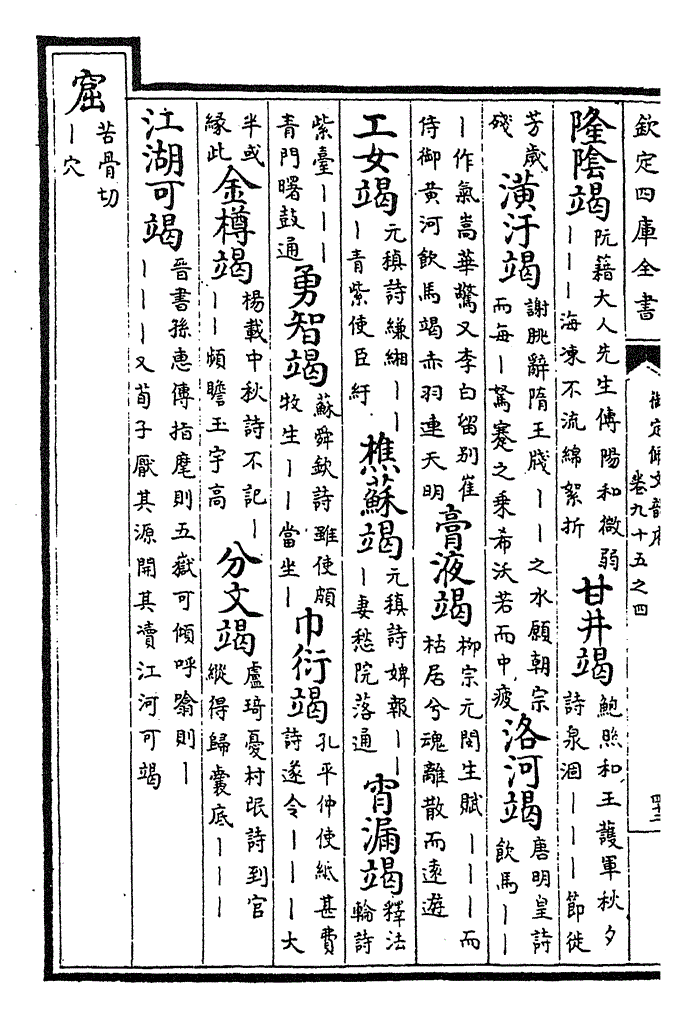 欽定四庫全書
御定佩文韻府
卷九十五之四
隆陰竭 阮籍大人先生傳陽和微弱｜｜｜海凍不流綿絮折 甘井竭 鮑照和王護軍秋夕詩泉涸｜｜｜節徙
芳歲殘 潢汙竭 謝朓辭隋王牋｜｜之水願朝宗而每｜駑蹇之乘希沃若而中疲 洛河竭 唐明皇詩飲馬｜｜
｜作氣嵩華驚又李白留別崔侍御黄河飲馬竭赤羽連天明 膏液竭 柳宗元閔生賦｜｜｜而枯居兮魂離散而遠遊
工女竭 元稹詩縑緗｜｜｜青紫使臣紆 樵蘇竭 元稹詩婢報｜｜｜妻愁院落通 宵漏竭 釋法輪詩
紫臺｜｜｜青門曙鼓通 勇智竭 蘇舜欽詩雖使頗牧生｜｜當坐｜ 巾衍竭 孔平仲使紙甚費詩遂令｜｜｜大
半或緣此 金樽竭 楊載中秋詩不記｜｜｜頻瞻玉宇高 分文竭 盧琦憂村氓詩到官縱得歸囊底｜｜｜
江湖可竭 晉書孫惠傳指麾則五嶽可傾呼噏則｜｜｜｜又荀子厭其源開其瀆江河可竭
窟 苦骨切｜穴